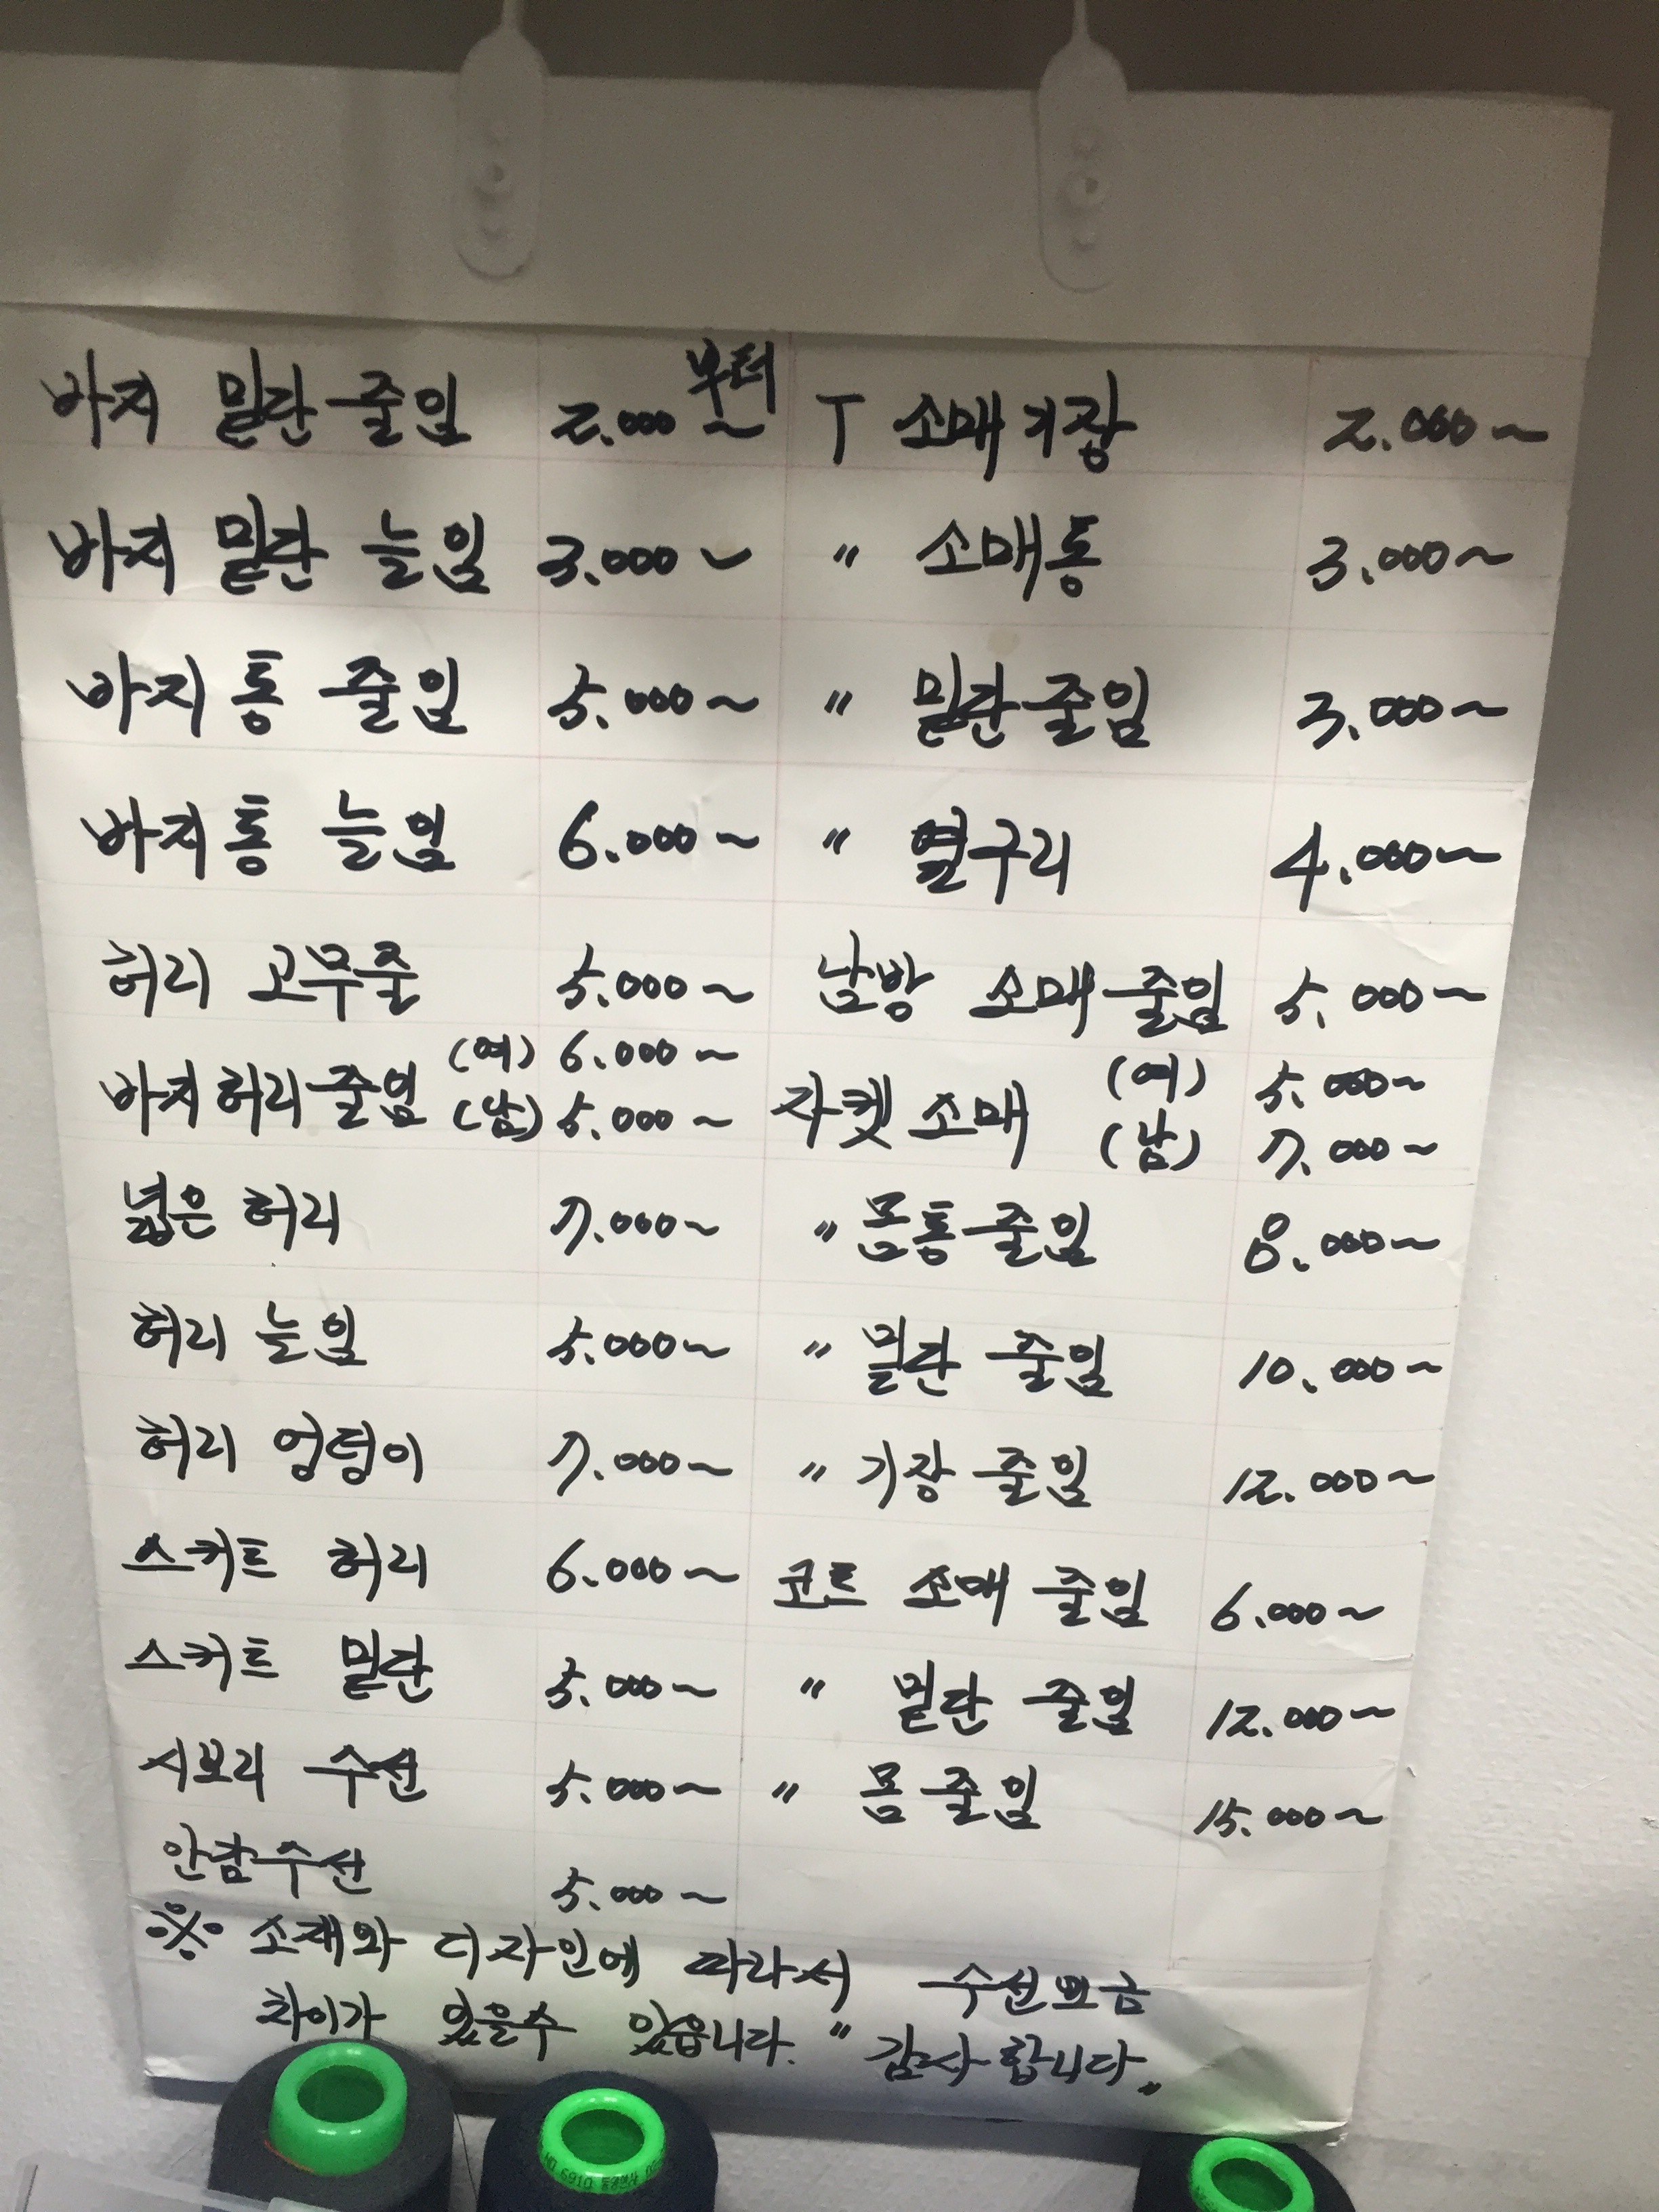 바지 밑단 줄임 2.000부터~
바지 밑단 늘임 3.000~
바지 통 줄임 5.000~
바지 통 늘임 6.000~
허리 고무줄 5.000~
바지 허리 줄임 (여) 6.000~
(남) 5.000~
넓은 허리 7.000~
허리 늘임 5.000~
허리 엉덩이 7.000~
스커트 허리 6.000~
스커트 밑단 5.000~
시보리 수선 5.000~
안감 수선 5.000~
T 소매기장 2.000~
〃 소매통 3.000~
〃 밑단 줄임 3.000~
〃 옆구리 4.000~
남방 소매 줄임 5.000~
자켓 소매 (여) 5.000~
(남) 7.000~
〃 몸통 줄임 8.000~
〃 밑단 줄임 10.000~
〃 기장 줄임 12.000~
코트 소매 줄임 6.000~
〃 밑단 줄임 12.000~
〃 몸 줄임 15.000~
※ 소재와 디자인에 따라서 수선요금
차이가 있을수 있읍니다. "감사합니다"
NO 6910